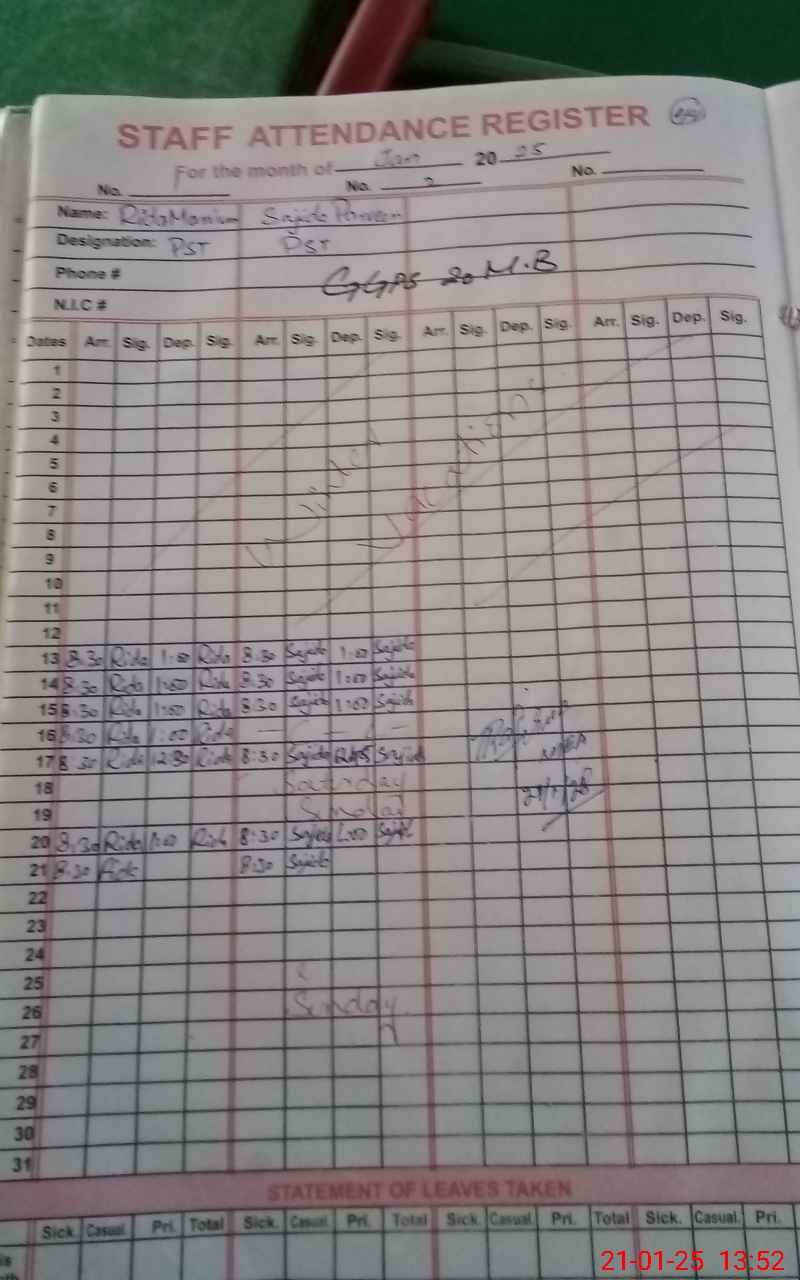 STAFF ATTENDANCE REGISTER
For the month of Jan 20 25
No. 1 No. 2 No.
Name: Rida Sajida Parveen
Designation: PST PST
Phone #
GGPS 20 M.B
N.I.C #
Dates Arr. Sig. Dep. Sig. Arr. Sig. Dep. Sig. Arr. Sig. Dep. Sig. Arr. Sig. Dep. Sig.
1
2
3
4
5
6
7
8
9
10
11
12
Winter Vacations
13 8:30 Rida 1:00 Rida 8:30 Sajida 1:00 Sajida
14 8:30 Rida 1:00 Rida 8:30 Sajida 1:00 Sajida
15 8:30 Rida 1:00 Rida 8:30 Sajida 1:00 Sajida
16 8:30 Rida 1:00 Rida — C — L —
17 8:30 Rida 12:30 Rida 8:30 Sajida Sajida
18 Saturday
19 Sunday
21/1/25
20 8:30 Rida 1:00 Rida 8:30 Sajida 1:00 Sajida
21 8:30 Rida 8:30 Sajida
22
23
24
25
26 Sunday
27
28
29
30
31
STATEMENT OF LEAVES TAKEN
Sick. Casual. Pri. Total Sick. Casual. Pri. Total Sick. Casual. Pri. Total Sick. Casual. Pri.
21-01-25 13:52